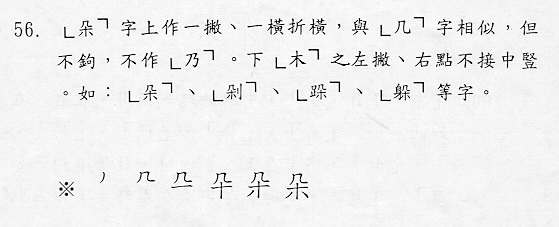 56. 「朵」字上作一撇、一橫折橫，與「几」字相似，但
不鉤，不作「乃」。下「木」之左撇、右點不接中豎
。如：「朵」、「剁」、「跺」、「躲」等字。
※ 丿 几 朵